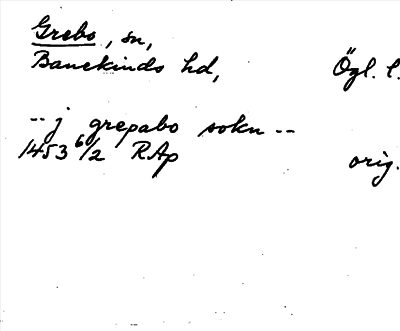 Grebo, sn,
Banekinds hd, Ögl. l.
-- j grepabo sokn --
1453 6/2 RAp orig.